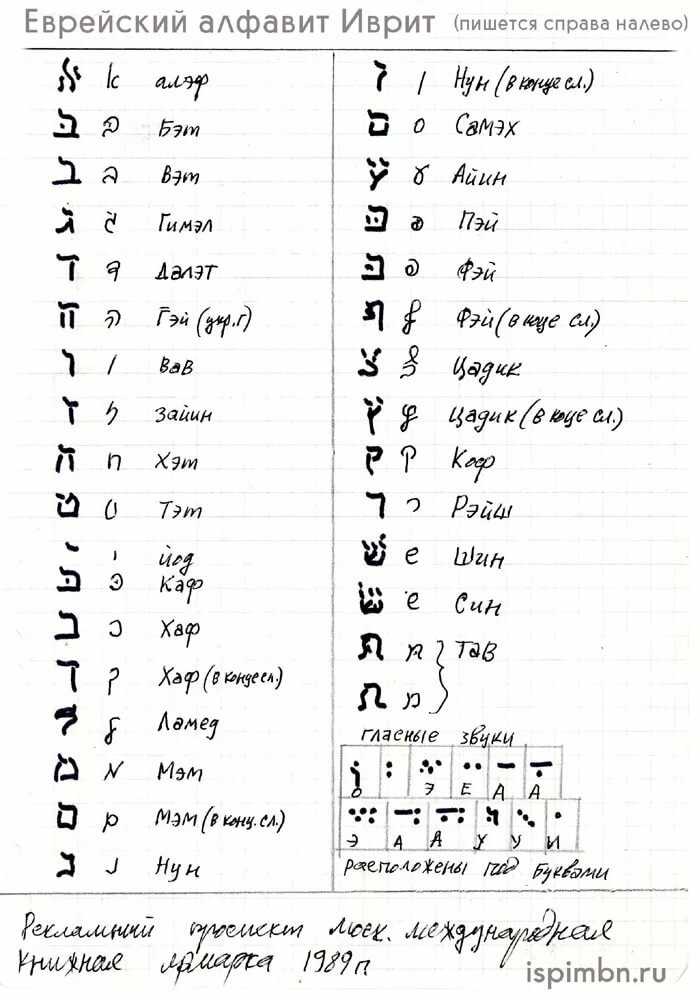 Еврейский алфавит Иврит (пишется справа налево)
א алэф
בּ Бэт
ב Вэт
ג Гимэл
ד Далэт
ה Гэй (укр. г)
ו Вав
ז Зайин
ח Хэт
ט Тэт
י йод
כּ Каф
כ Хаф
ך Хаф (в конце сл.)
ל Ламед
מ Мэм
ם Мэм (в конц. сл.)
נ Нун
ן Нун (в конце сл.)
ס Самэх
ע Айин
פּ Пэй
פ Фэй
ף Фэй (в конце сл.)
צ Цадик
ץ Цадик (в конце сл.)
ק Коф
ר Рэйш
שׁ Шин
שׂ Син
תּ Тав
ת
гласные звуки
О Э Е А А
Э А А У У И
расположены под буквами
Рекламный проспект Моск. международная
книжная ярмарка 1989г.
ispimbn.ru